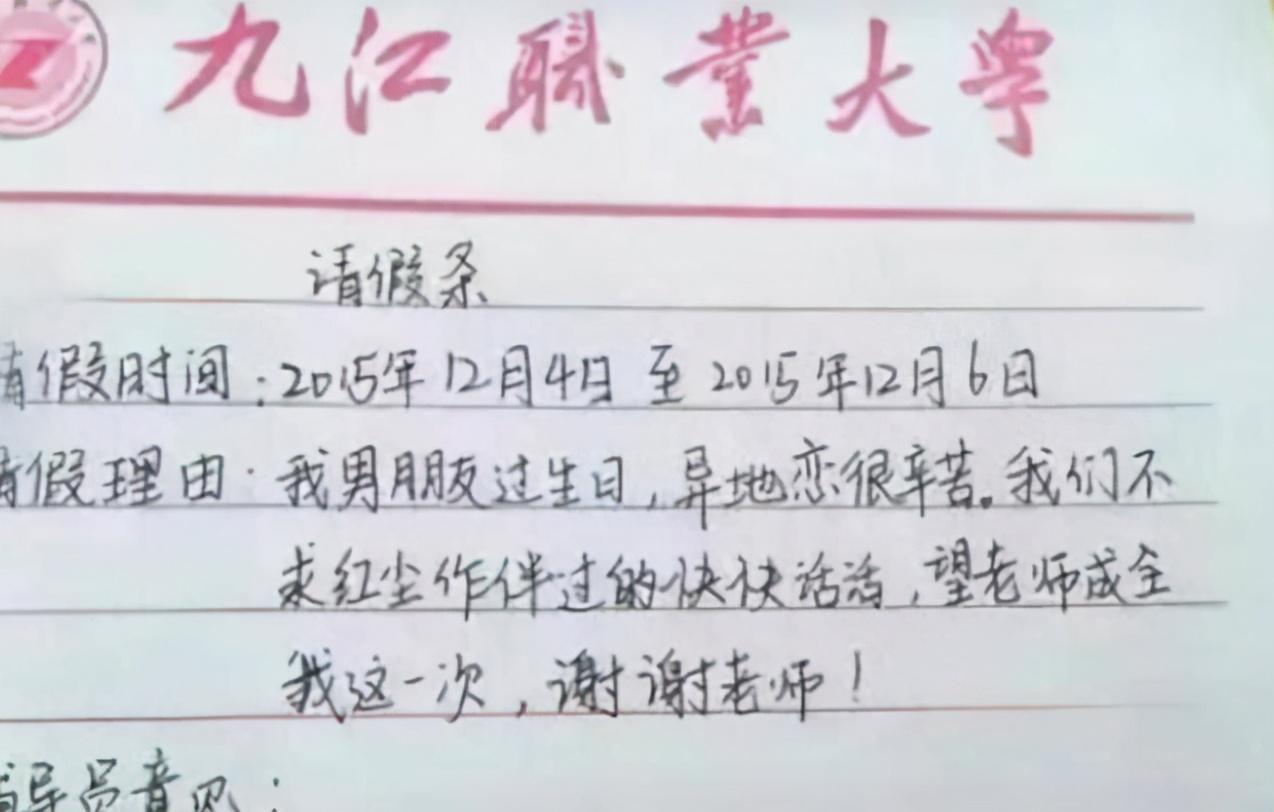 九江職業大學
请假条
请假时间:2015年12月4日 至 2015年12月6日
请假理由:我男朋友过生日,异地恋很辛苦。我们不
求红尘作伴过的快快活活,望老师成全
我这一次,谢谢老师!
辅导员意见: